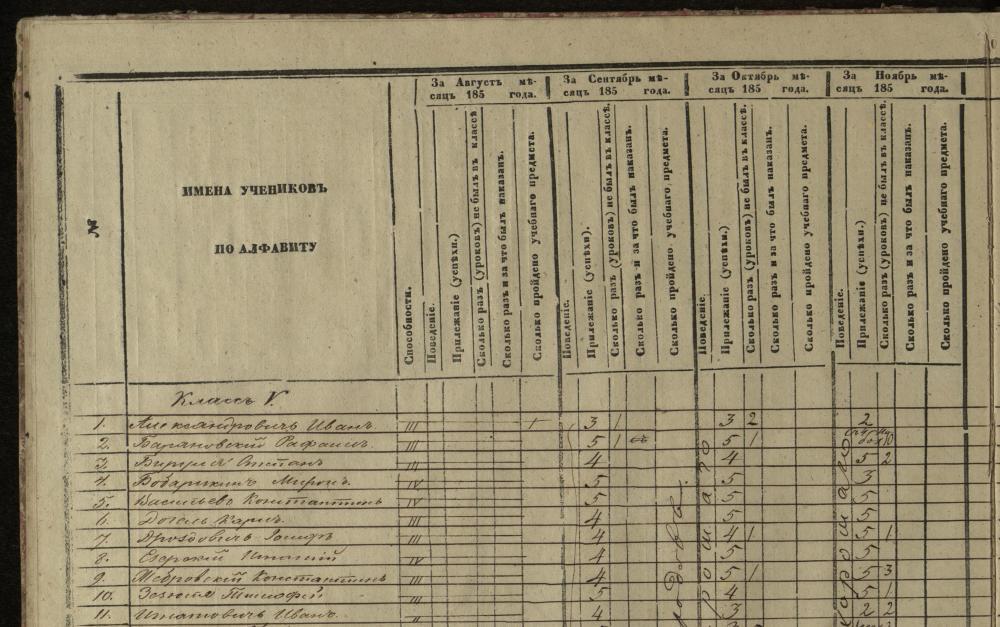 За Августъ мѣ-
сяцъ 185 года.
За Сентябрь мѣ-
сяцъ 185 года.
За Октябрь мѣ-
сяцъ 185 года.
За Ноябрь мѣ-
сяцъ 185 года.
№
ИМЕНА УЧЕНИКОВЪ
ПО АЛФАВИТУ
Способности.
Поведеніе.
Прилежаніе (успѣхи.)
Сколько разъ (уроковъ) не былъ въ классѣ
Сколько разъ и за что былъ наказанъ.
Сколько пройдено учебнаго предмета.
Поведеніе.
Прилежаніе (успѣхи).
Сколько разъ (уроковъ) не былъ въ классѣ.
Сколько разъ и за что былъ наказанъ.
Сколько пройдено учебнаго предмета.
Поведеніе.
Прилежаніе (успѣхи.)
Сколько разъ (уроковъ) не былъ въ классѣ.
Сколько разъ и за что былъ наказанъ.
Сколько пройдено учебнаго предмета.
Поведеніе.
Прилежаніе (успѣхи.)
Сколько разъ (уроковъ) не былъ въ классѣ.
Сколько разъ и за что былъ наказанъ.
Сколько пройдено учебнаго предмета.
Классъ V.
1. Александровичъ Иванъ III 1 3 1 3 2 2
2. Барановскій Рафаилъ III 5 1 5 1
3. Степанъ III 4 4 5 2
4. Миронъ IV 5 5 3
5. Васильевъ Константинъ IV 5 5 5
6. Догель Карлъ III 4 5 5
7. Дроздовичъ Іосифъ III 4 4 1 5 1
8. Езерскій Игнатій IV 4 5 5
9. Константинъ III 4 5 1 5 3
10. Тимофей III 5 4 5 1
11. Игнатовичъ Иванъ II 4 3 2 2